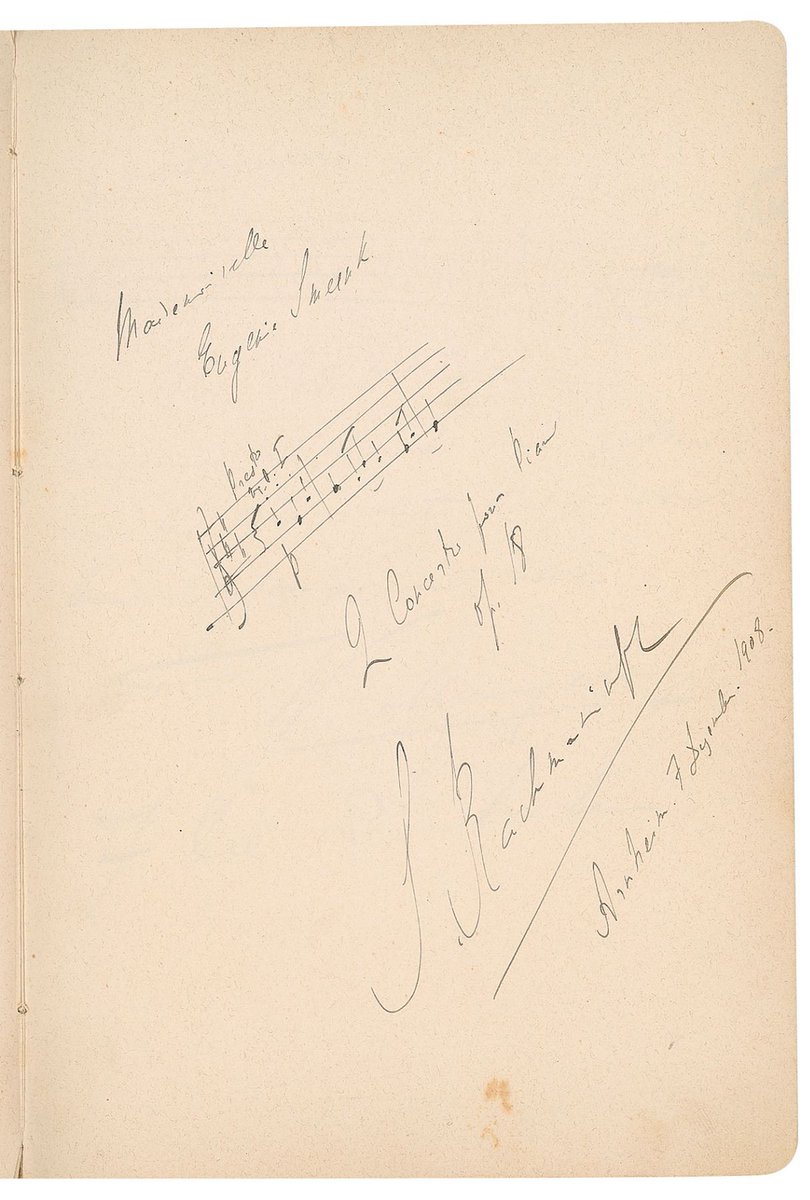 Mademoiselle
Eugénie Smeenk.
2 Concerto pour Piano
op. 18
S. Rachmaninoff
Arnheim. 7 Dezember. 1908.